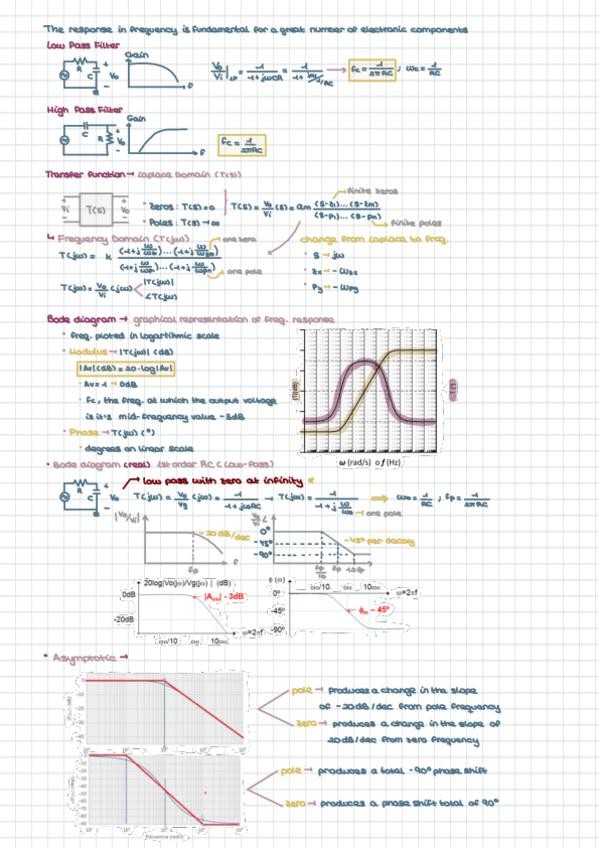 The response in frequency is fundamental for a great number of electronic components
Low Pass Filter
Gain
R
C
Vo
f
Vo/Vi |LP = 1/(1+jωCR) = 1/(1+jω/1/RC) → fc = 1/2πRC ; ωc = 1/RC
High Pass Filter
Gain
C
R
Vo
f
fc = 1/2πRC
Transfer function → Laplace Domain (T(s))
Vi T(s) Vo
• Zeros : T(s) = 0
• Poles : T(s) → ∞
T(s) = Vo/Vi (s) = am (s-z1)...(s-zm)/(s-p1)...(s-pn)
finite zeros
finite poles
↳ Frequency Domain (T(jω))
one zero
T(jω) = k (1+j ω/ωz1)...(1+j ω/ωzm)/(1+j ω/ωp1)...(1+j ω/ωpn)
one pole
T(jω) = Vo/Vi (jω)
|T(jω)|
∠T(jω)
change from Laplace to freq.
• s → jω
• zx → -ωzx
• py → -ωpy
Bode diagram → graphical representation of freq. response
• freq. ploted in logartihmic scale
• Modulus → |T(jω)| (dB)
|Av|(dB) = 20·log|Av|
• Av=1 → 0dB
• fc, the freq. at which the output voltage
is it's mid-frequency value -3dB
• Phase → T(jω) (°)
• degrees on linear scale
ω (rad/s) o f (Hz)
• Bode diagram (real) 1st order RC (Low-Pass)
low pass with zero at infinity
R
C
Vo
T(jω) = Vo/Vg (jω) = 1/(1+jωRC) → T(jω) = 1/(1+j ω/ωo) ⇒ ωo = 1/RC ; fp = 1/2πRC
one pole
|Vo/Vi|
-20dB/dec
fp
0°
-45°
-90°
-45° per decay
fp/10 fp 10fp
20log|Vo(jω)/Vg(jω)| (dB)
0dB
-20dB
|A| - 3dB
ω=2πf
ϕ (o)
0°
-45°
-90°
- 45°
ω=2πf
• Asymptotic →
pole → produces a change in the slope
of -20dB/dec from pole frequency
zero → produces a change in the slope of
20dB/dec from zero frequency
pole → produces a total -90° phase shift
zero → produces a phase shift total of 90°